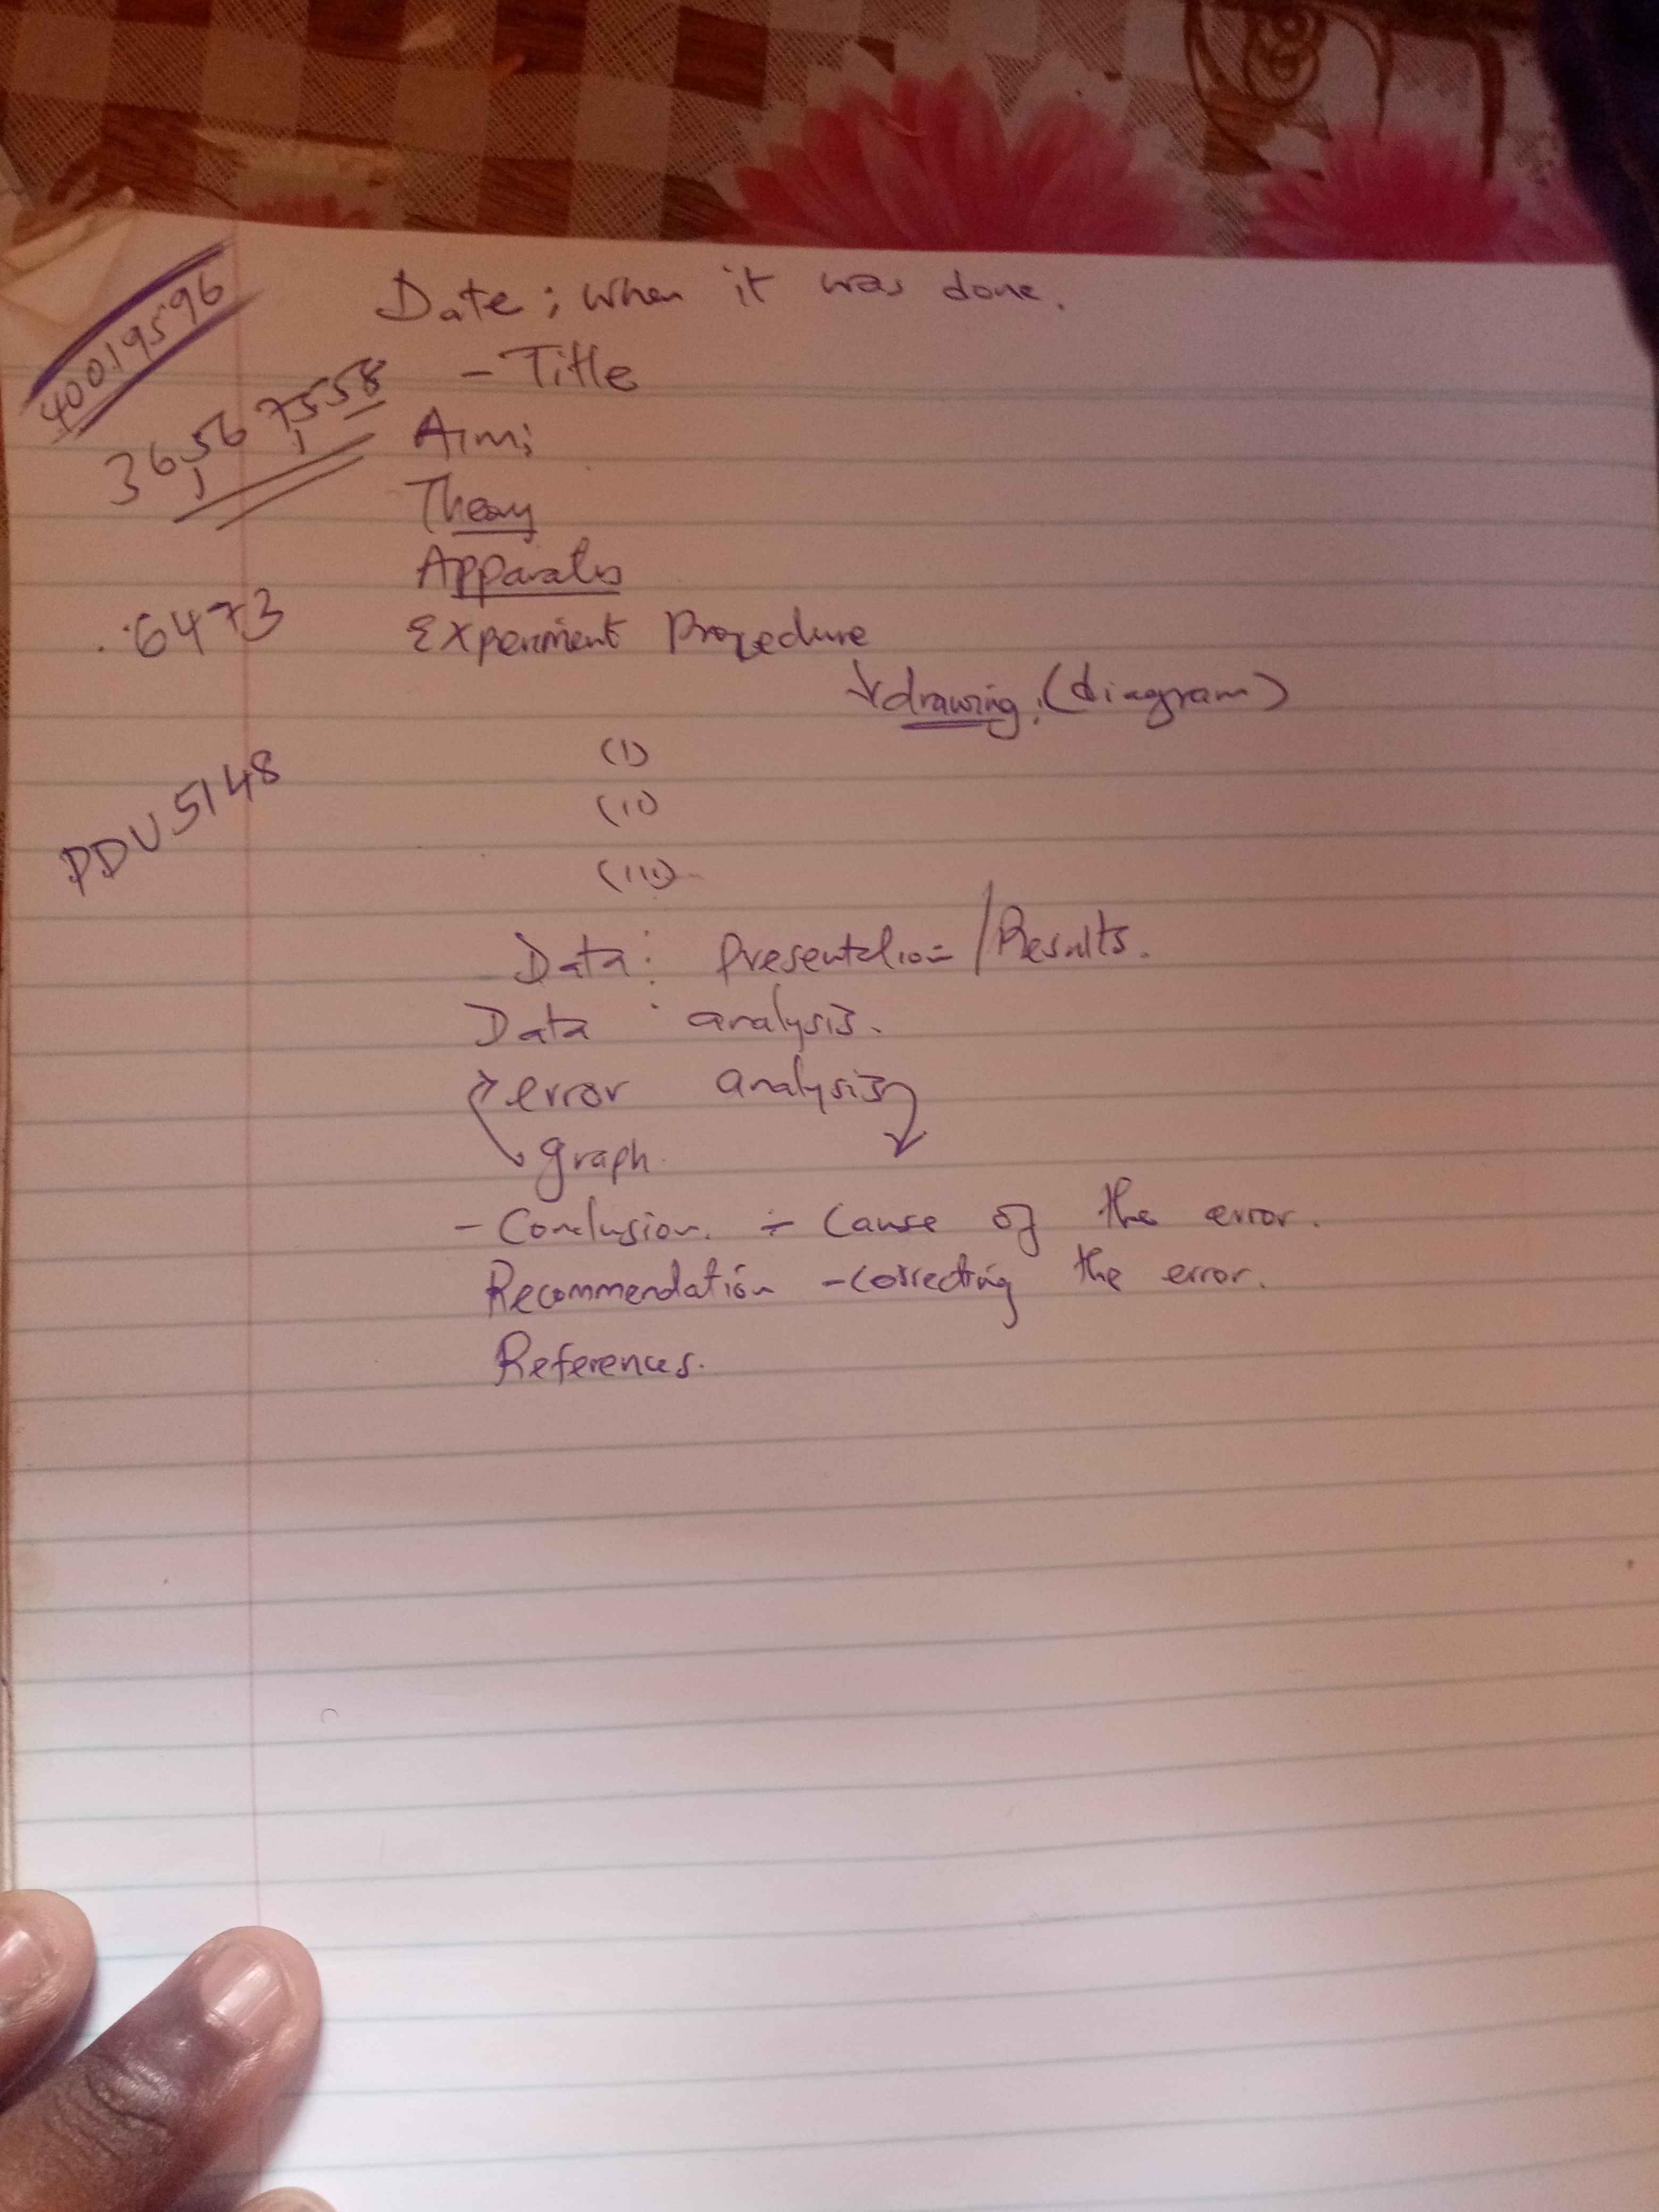 40019596
Date ; when it was done.
- Title
36,567,558
Aim;
Theory
Apparatus
6473
Experiment Procedure
drawing. (diagram)
(i)
(ii)
PDU5148
(iii)
Data : Presentation / Results.
Data : analysis.
error analysis
graph.
- Conclusion. - Cause of the error.
Recommendation - correcting the error.
References.